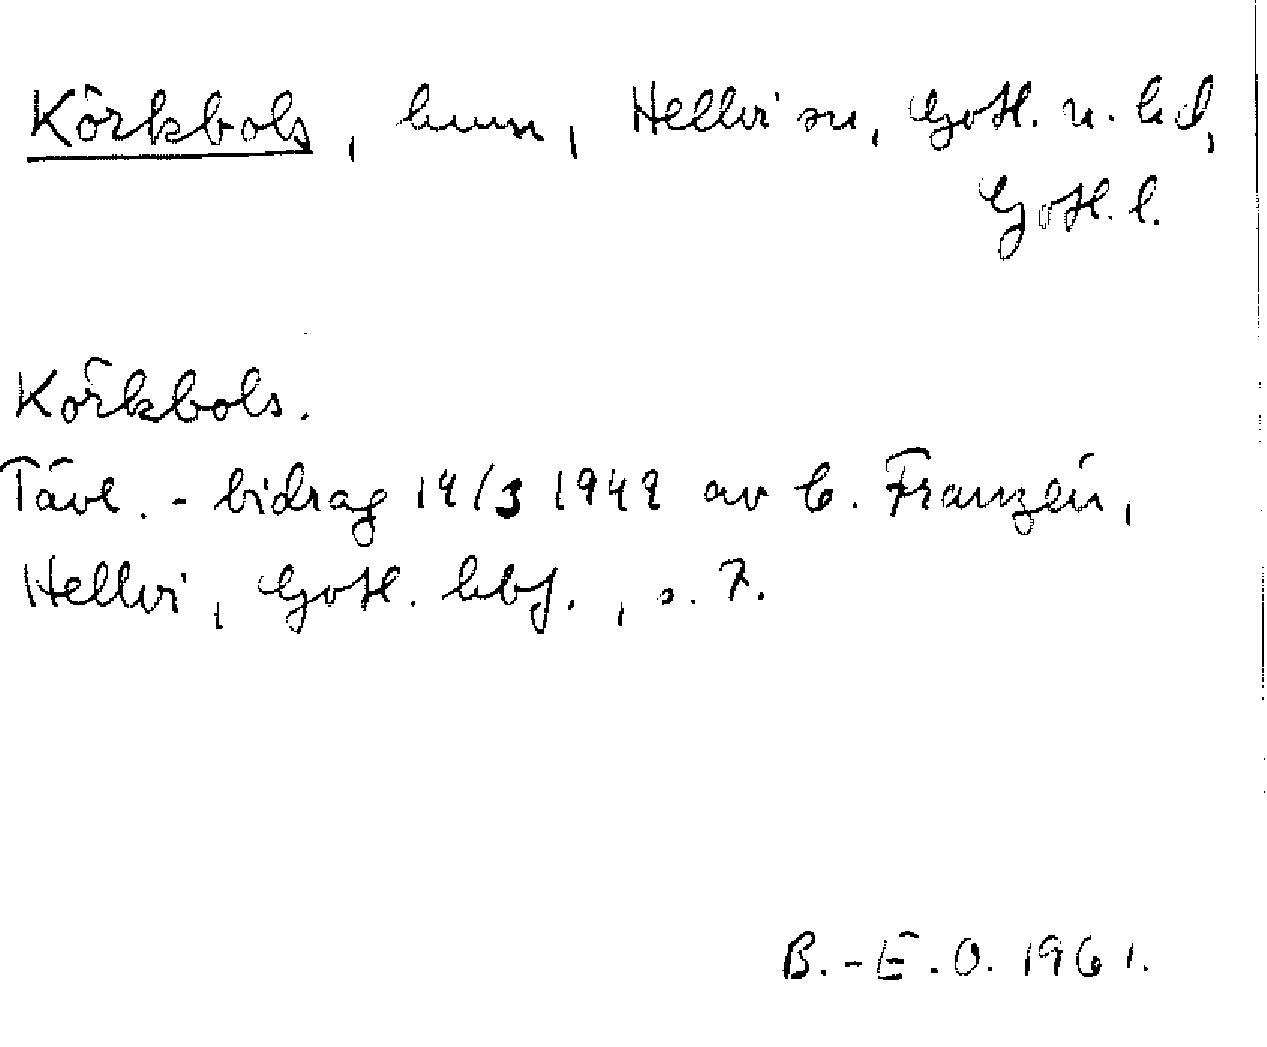 Körkbols, hmn, Hellvi sn, Gotl. n. hd,
Gotl. l.
Körkbols.
Tävl.-bidrag 14/3 1942 av C. Franzén,
Hellvi, Gotl. hbf., s. 7.
B.-E.O. 1961.